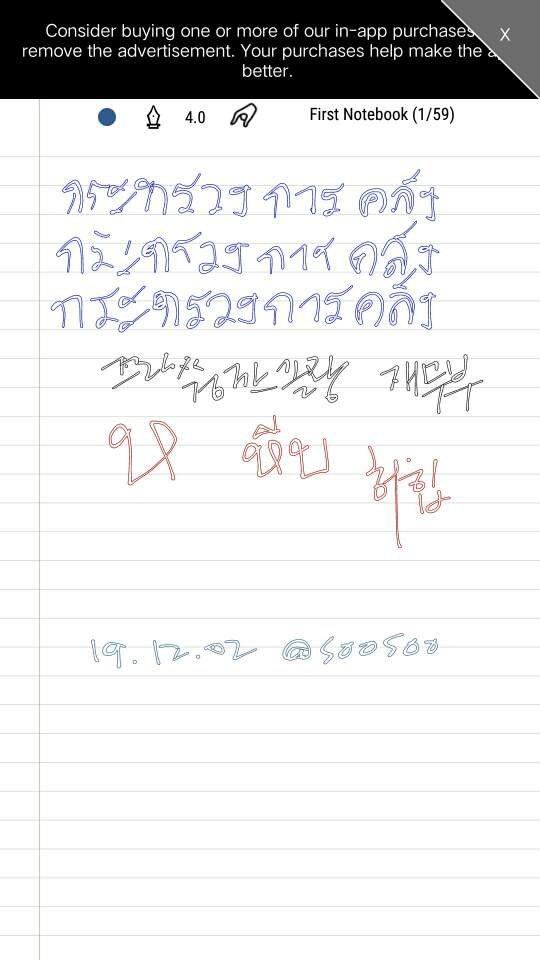 Consider buying one or more of our in-app purchases
remove the advertisement. Your purchases help make the
better.
X
4.0 First Notebook (1/59)
กระทรวง การ คลัง
กระทรวง การ คลัง
กระทรวงการคลัง
재무부
ห หีบ
19.12.02 @soosoo